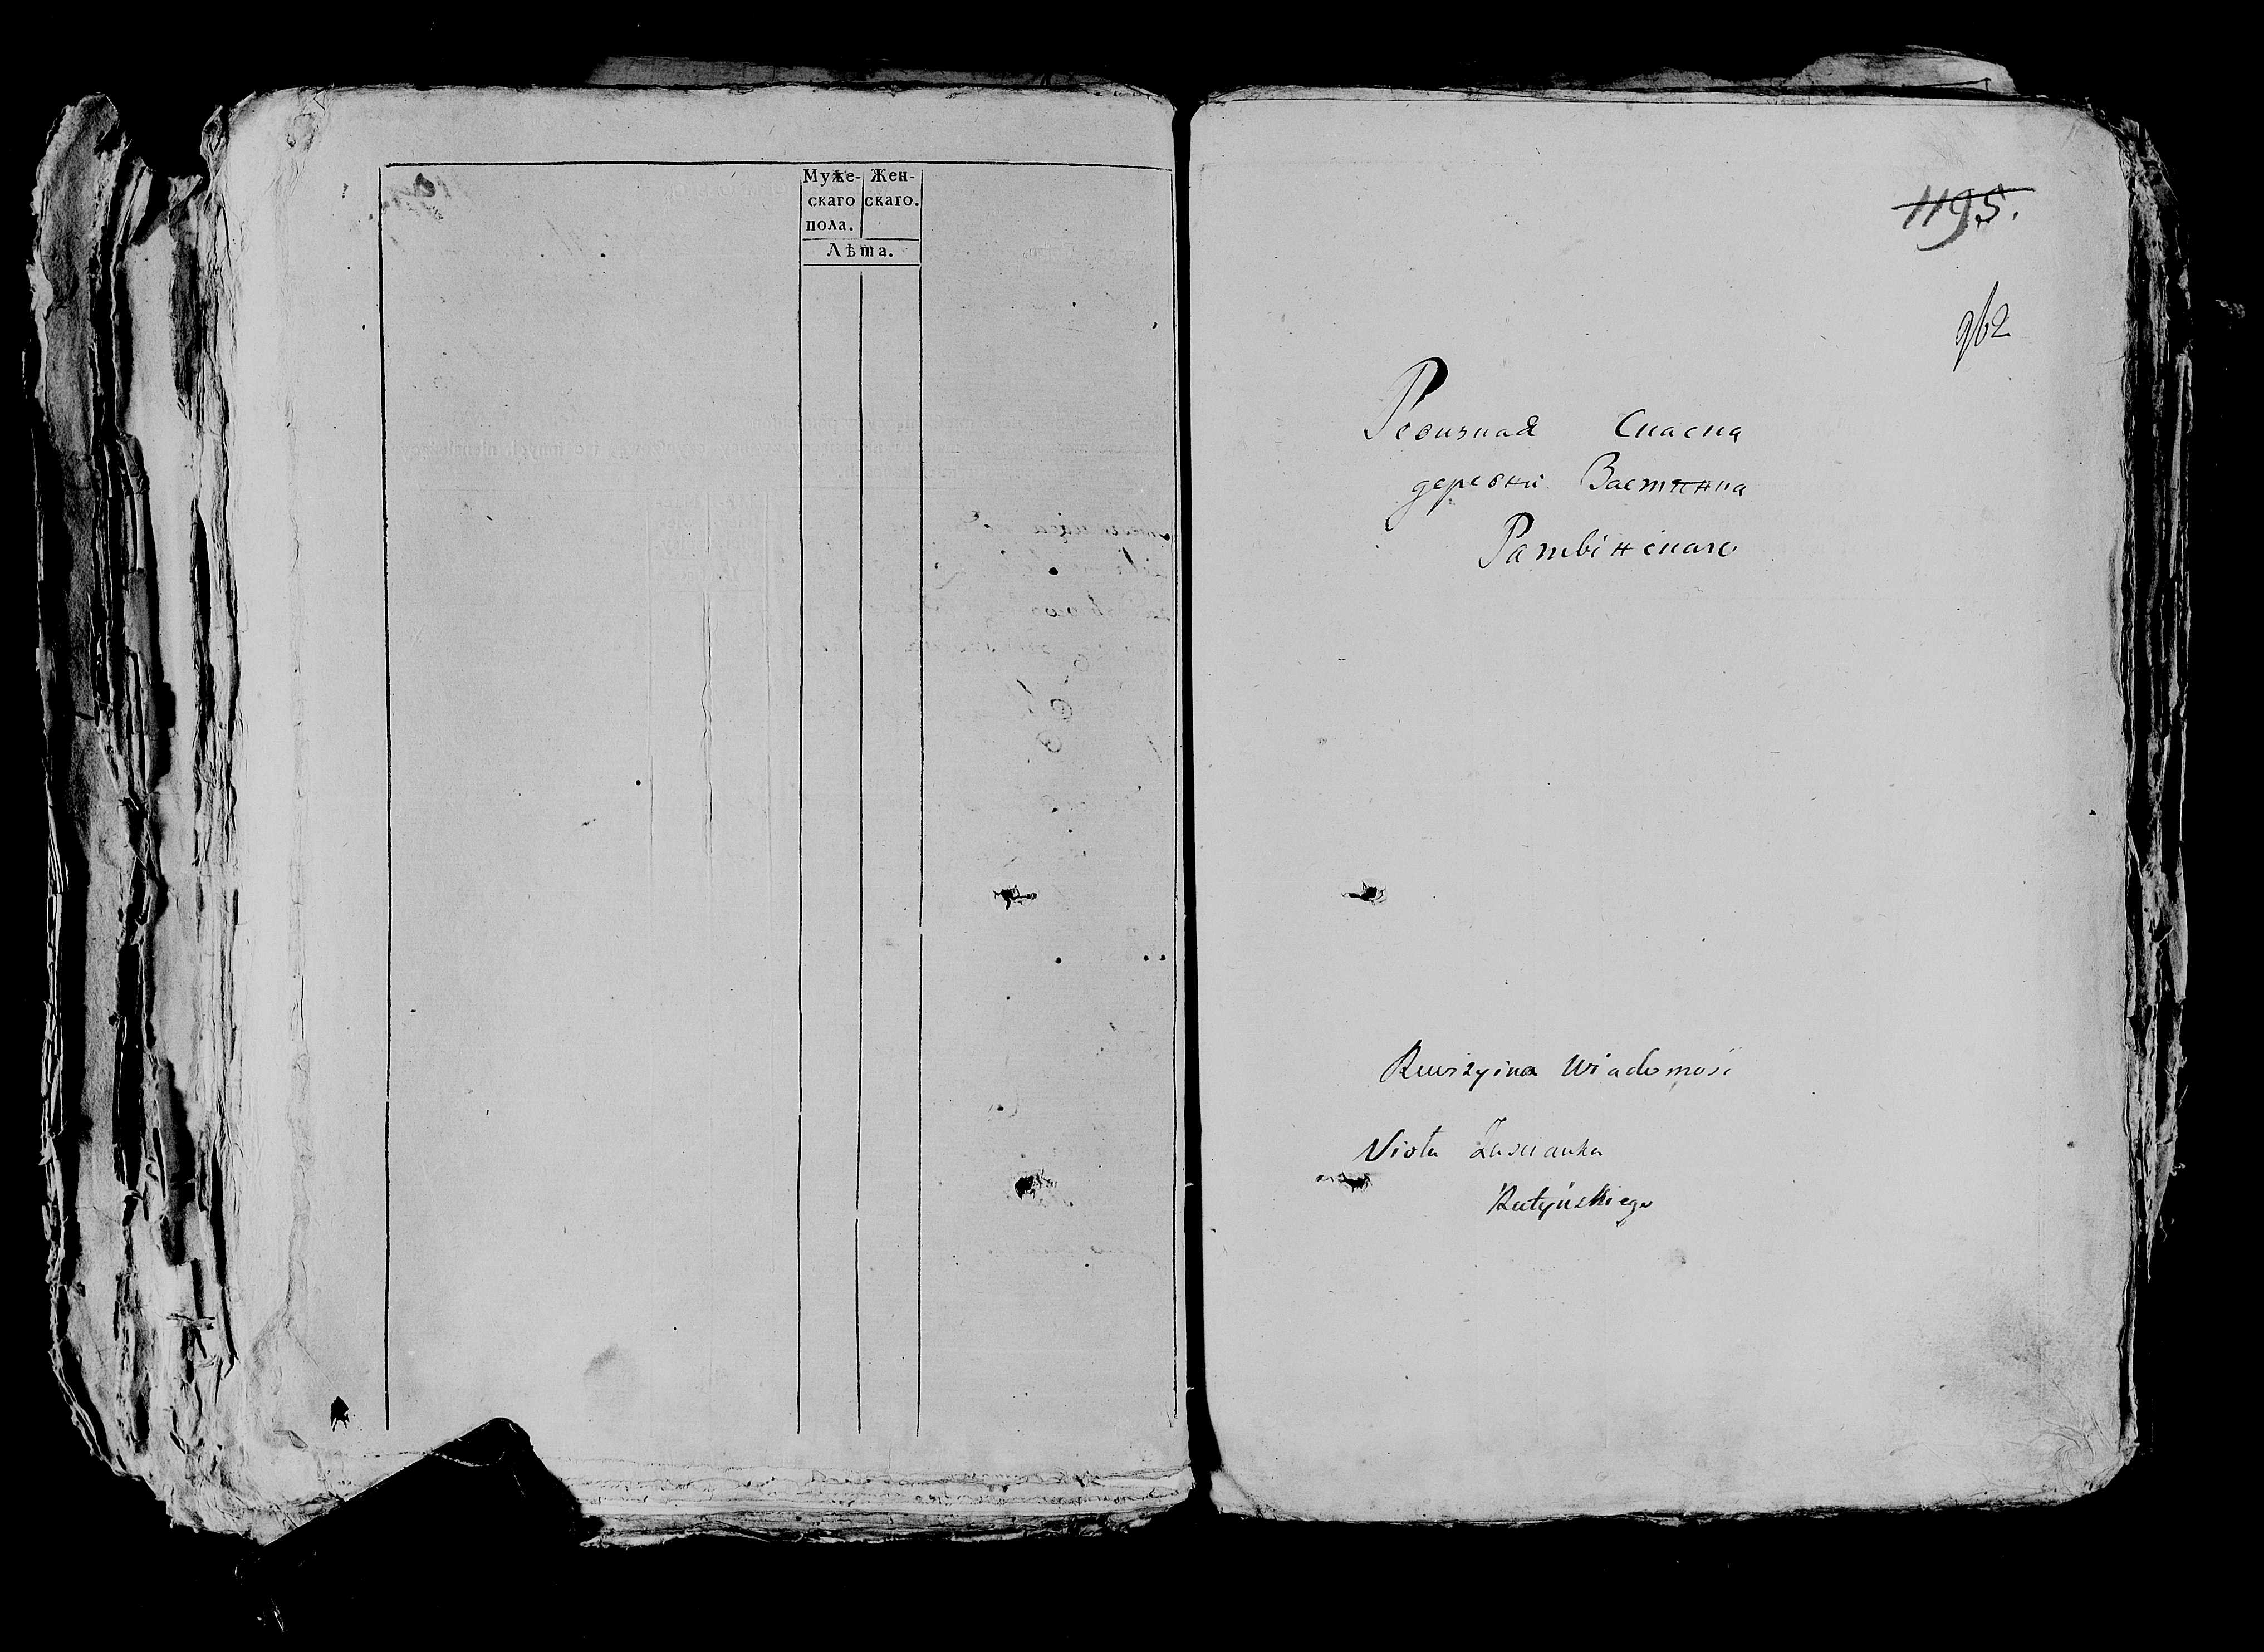 Муже- Жен-
скаго скаго.
пола.
Лѣта.
1195.
962
Ревизная Спасна
деревни Застянка
Ратвінскаго
Rewizyina Wiadomość
Siola Zascianka
Ratyńskiego